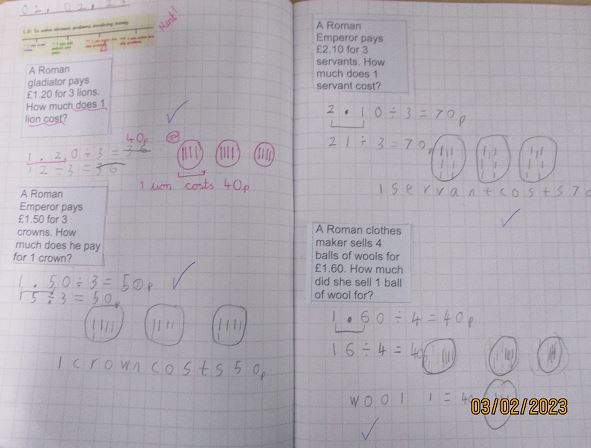 02.02.23
L.O: To solve division problems involving money.
Next!
A Roman
gladiator pays
£1.20 for 3 lions.
How much does 1
lion cost?
40p
1.20÷3=36
12÷3=30
1 lion costs 40p
A Roman
Emperor pays
£1.50 for 3
crowns. How
much does he pay
for 1 crown?
1.50÷3=50p
15÷3=50p
1 crown costs 50p
A Roman
Emperor pays
£2.10 for 3
servants. How
much does 1
servant cost?
2.10÷3=70p
21÷3=70p
1 servant costs 70
A Roman clothes
maker sells 4
balls of wools for
£1.60. How much
did she sell 1 ball
of wool for?
1.60÷4=40p
16÷4=40p
wool 1=40
03/02/2023